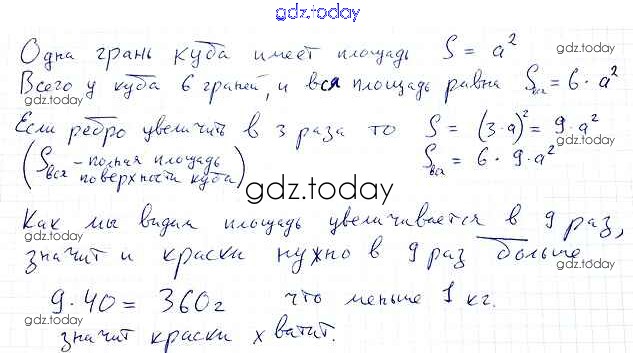 gdz.today
Одна грань куба имеет площадь S = a²
gdz.today
Всего у куба 6 граней, и вся площадь равна Sвся = 6 · a²
gdz.today
Если ребро увеличить в 3 раза то S = (3·a)² = 9·a²
gdz.today
(Sвся – полная площадь поверхности куба) Sвся = 6 · 9·a²
gdz.today
gdz.today
Как мы видим площадь увеличивается в 9 раз,
gdz.today
значит и краски нужно в 9 раз больше
gdz.today
9·40 = 360г что меньше 1 кг.
gdz.today
gdz.today
значит краски хватит.